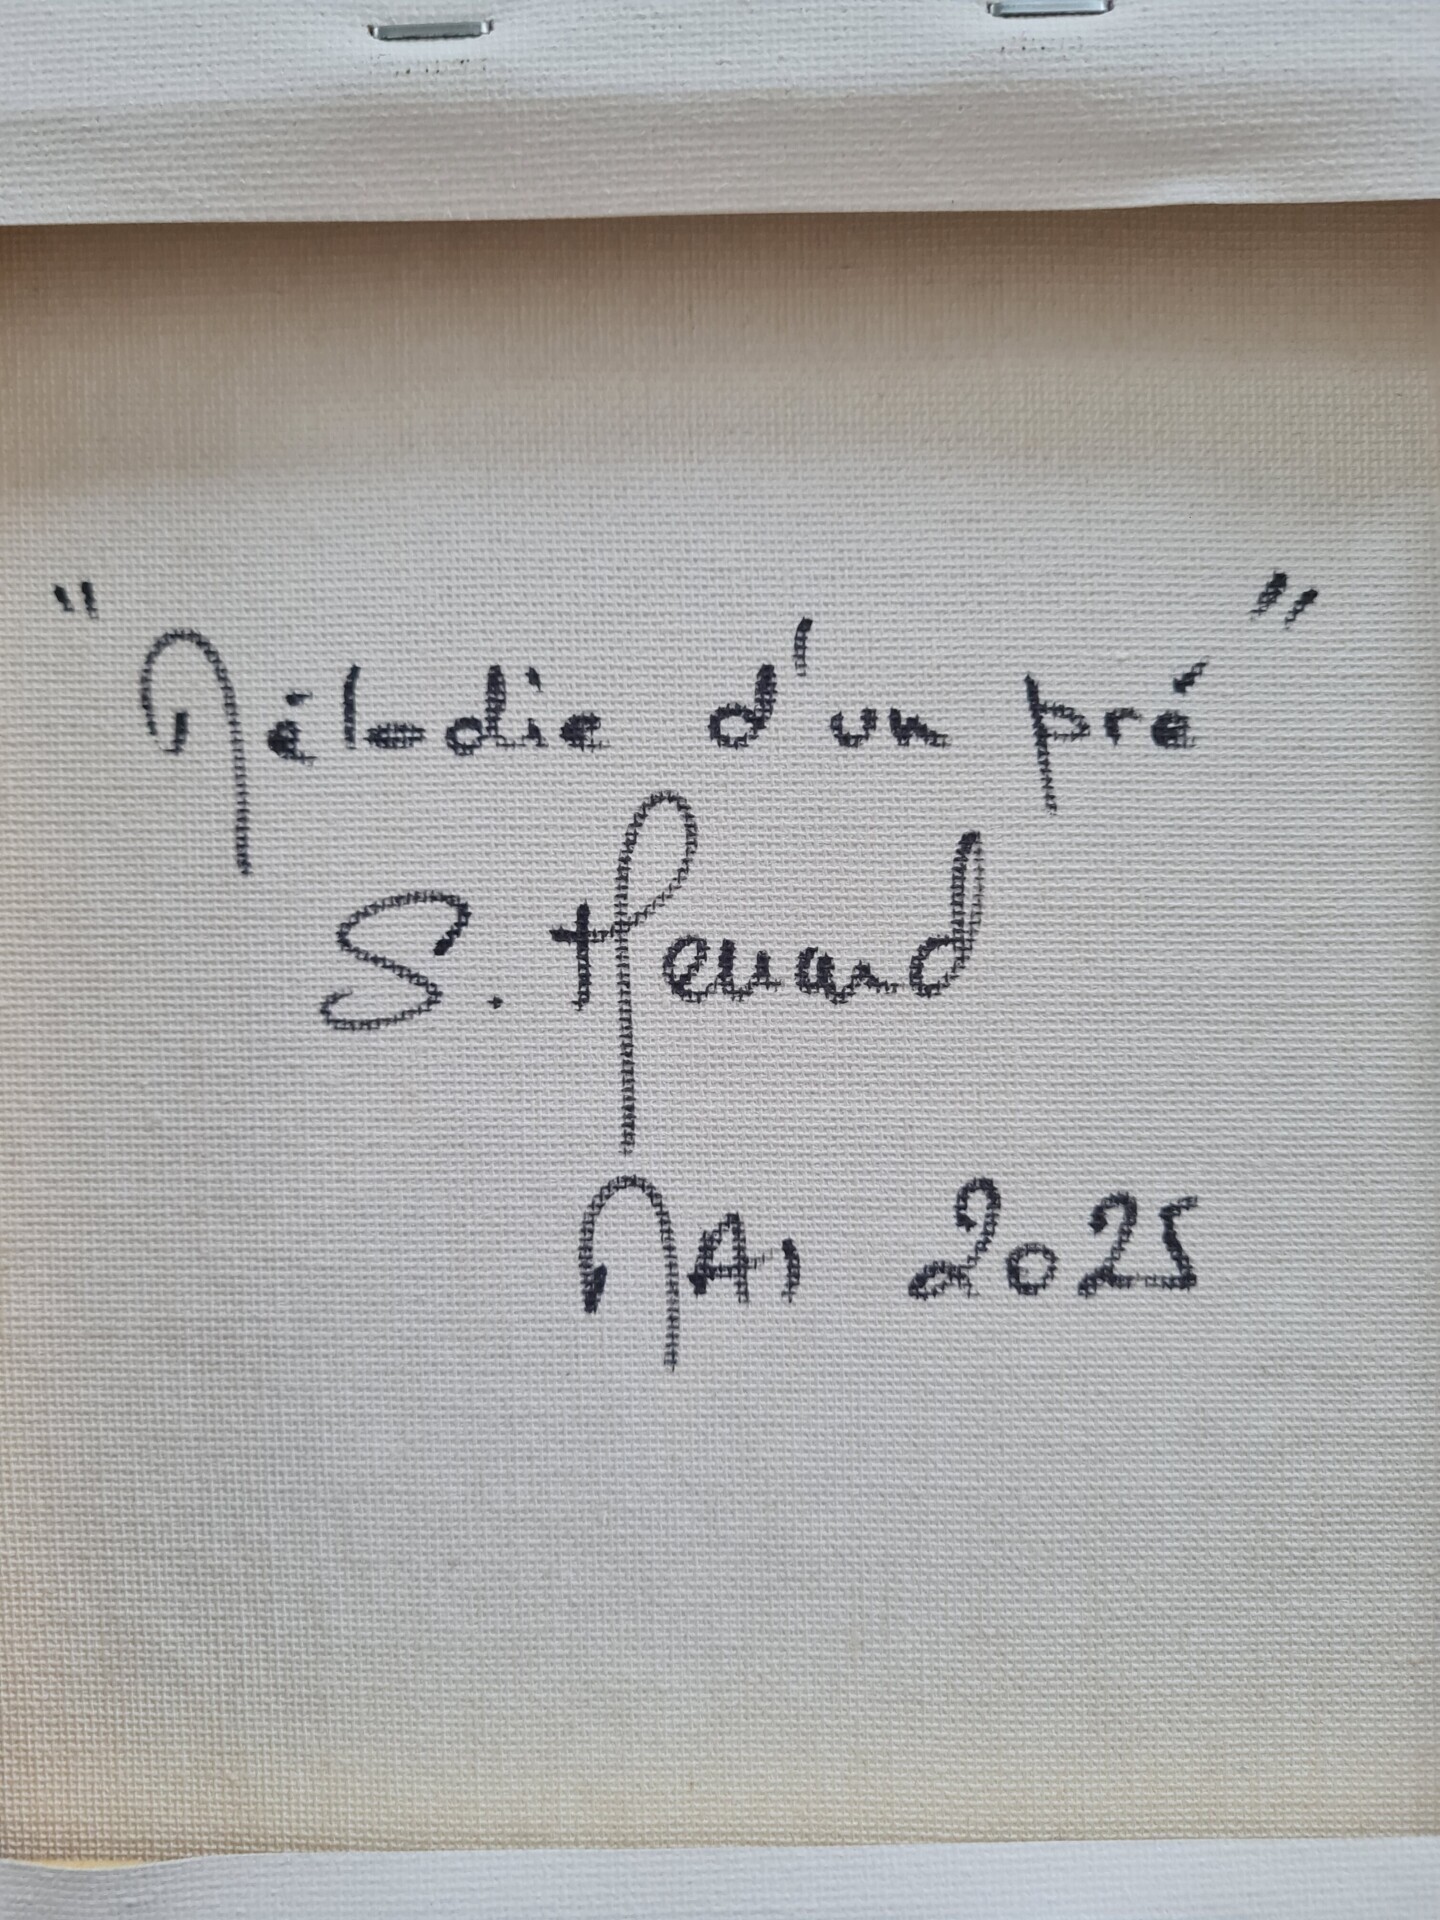 "Mélodie d'un pré"
S. Heuard
MAI 2025